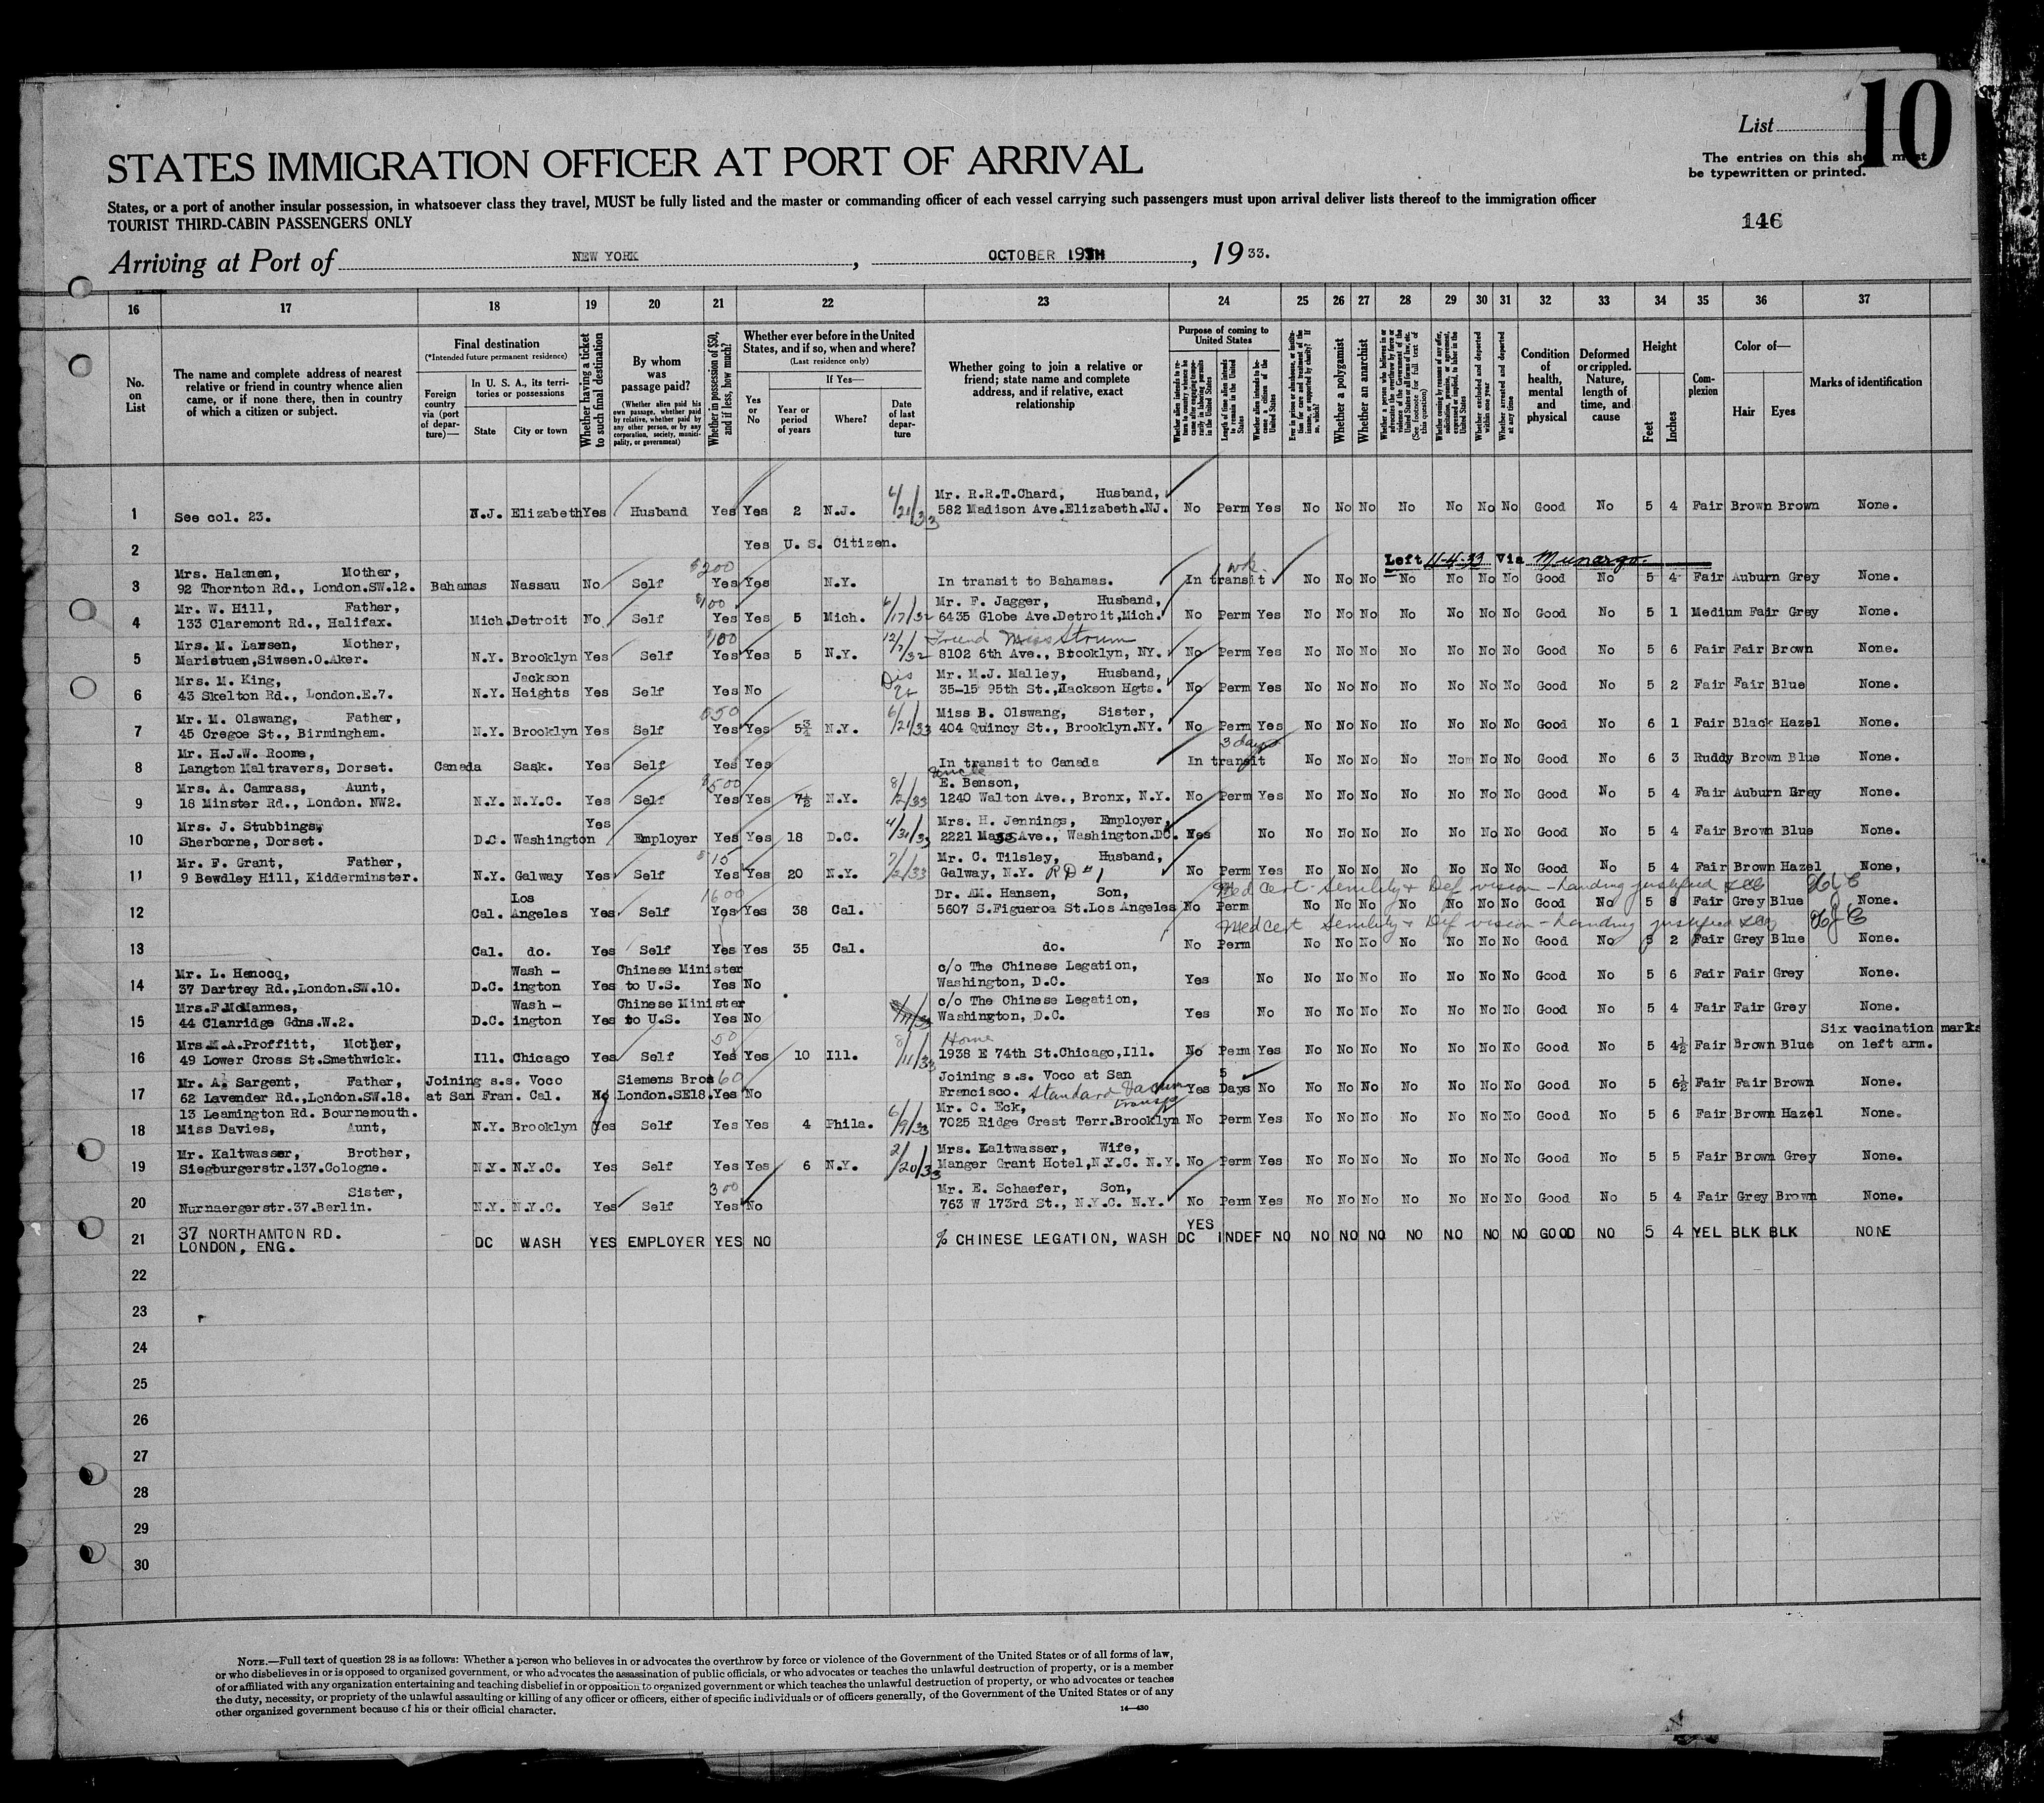 List 10
STATES IMMIGRATION OFFICER AT PORT OF ARRIVAL
The entries on this sheet must
be typewritten or printed.
States, or a port of another insular possession, in whatsoever class they travel, MUST be fully listed and the master or commanding officer of each vessel carrying such passengers must upon arrival deliver lists thereof to the immigration officer
TOURIST THIRD-CABIN PASSENGERS ONLY
146
Arriving at Port of NEW YORK, OCTOBER 19TH, 1933.
16 17 18 19 20 21 22 23 24 25 26 27 28 29 30 31 32 33 34 35 36 37
No. on List
The name and complete address of nearest relative or friend in country whence alien came, or if none there, then in country of which a citizen or subject.
Final destination
(*Intended future permanent residence)
Foreign country via (port of departure)—
In U. S. A., its territories or possessions
State
City or town
Whether having a ticket to such final destination
By whom was passage paid?
(Whether alien paid his own passage, whether paid by relative, whether paid by any other person, or by any corporation, society, municipality, or government)
Whether in possession of $50, and if less, how much?
Whether ever before in the United States, and if so, when and where?
(Last residence only)
If Yes—
Yes or No
Year or period of years
Where?
Date of last departure
Whether going to join a relative or friend; state name and complete address, and if relative, exact relationship
Purpose of coming to United States
Length of time alien intends to remain in the United States
Whether alien intends to become a citizen of the United States
Whether a polygamist
Whether an anarchist
(See footnote for full text of this question)
Whether excluded and deported within one year
Whether arrested and deported at any time
Condition of health, mental and physical
Deformed or crippled. Nature, length of time, and cause
Height
Feet
Inches
Complexion
Color of—
Hair
Eyes
Marks of identification
1 See col. 23. N.J. Elizabeth Yes Husband Yes Yes 2 N.J. 6/21/33 Mr. R.R.T.Chard, Husband, 582 Madison Ave.Elizabeth.NJ. No Perm Yes No No No No No No No Good No 5 4 Fair Brown Brown None.
2 Yes U. S. Citizen.
Left 11-4-33 Via Munargo.
3 Mrs. Halanen, Mother, 92 Thornton Rd., London.SW.12. Bahamas Nassau No Self $200 Yes Yes N.Y. In transit to Bahamas. 1 wk. In transit No No No No No No No Good No 5 4 Fair Auburn Grey None.
4 Mr. W. Hill, Father, 133 Claremont Rd., Halifax. Mich. Detroit No Self $100 Yes Yes 5 Mich. 6/17/32 Mr. F. Jagger, Husband, 6435 Globe Ave.Detroit,Mich. No Perm Yes No No No No No No No Good No 5 1 Medium Fair Grey None.
5 Mrs. M. Lawsen, Mother, Maristuen,Siwsen.O.Aker. N.Y. Brooklyn Yes Self $100 Yes Yes 5 N.Y. 12/7/32 Friend Miss Strum 8102 6th Ave., Brooklyn, NY. No Perm Yes No No No No No No No Good No 5 6 Fair Fair Brown None.
6 Mrs. M. King, 43 Skelton Rd., London.E.7. N.Y. Jackson Heights Yes Self Yes No Mr. M.J. Malley, Husband, 35-15 95th St.,Hackson Hgts. No Perm Yes No No No No No No No Good No 5 2 Fair Fair Blue None.
7 Mr. M. Olswang, Father, 45 Cregoe St., Birmingham. N.Y. Brooklyn Yes Self $50 Yes Yes 5¾ N.Y. 6/21/33 Miss B. Olswang, Sister, 404 Quincy St., Brooklyn.NY. No Perm Yes No No No No No No No Good No 6 1 Fair Black Hazel None.
8 Mr. H.J.W. Roome, Langton Maltravers, Dorset. Canada Sask. Yes Self Yes Yes In transit to Canada 3 days In transit No No No No No No No Good No 6 3 Ruddy Brown Blue None.
9 Mrs. A. Camrass, Aunt, 18 Minster Rd., London. NW2. N.Y. N.Y.C. Yes Self $500 Yes Yes 7½ N.Y. 8/2/33 Uncle E. Benson, 1240 Walton Ave., Bronx, N.Y. No Perm Yes No No No No No No No Good No 5 4 Fair Auburn Grey None.
10 Mrs. J. Stubbings, Sherborne, Dorset. D.C. Washington Yes Employer Yes Yes 18 D.C. Mrs. H. Jennings, Employer, 2221 Mass Ave., Washington.DC. Yes No No No No No No No No Good No 5 4 Fair Brown Blue None.
11 Mr. F. Grant, Father, 9 Bewdley Hill, Kidderminster. N.Y. Galway Yes Self $15 Yes Yes 20 N.Y. 7/2/33 Mr. C. Tilsley, Husband, Galway, N.Y. RD # 1 No Perm Yes No No No No No No No Good No 5 4 Fair Brown Hazel None,
Med cert - Senility & Def vision - landing justified
12 Cal. Los Angeles Yes Self 1600 Yes Yes 38 Cal. Dr. AM. Hansen, Son, 5607 S.Figueroa St.Los Angeles No Perm No No No No No No No Good No 5 8 Fair Grey Blue None.
Med cert Senility & Def vision - landing justified
13 Cal. do. Yes Self Yes Yes 35 Cal. do. No Perm No No No No No No No Good No 5 2 Fair Grey Blue None.
14 Mr. L. Henocq, 37 Dartrey Rd.,London.SW.10. D.C. Wash - ington Yes Chinese Minister to U.S. Yes No c/o The Chinese Legation, Washington, D.C. Yes No No No No No No No No Good No 5 6 Fair Fair Grey None.
15 Mrs.F.McMannes, 44 Clanridge Gdns.W.2. D.C. Wash - ington Yes Chinese Minister to U.S. Yes No c/o The Chinese Legation, Washington, D.C. Yes No No No No No No No No Good No 5 4 Fair Fair Grey None.
16 Mrs.M.A.Proffitt, Mother, 49 Lower Cross St.Smethwick. Ill. Chicago Yes Self 50 Yes Yes 10 Ill. 8/11/33 Home 1938 E 74th St.Chicago,Ill. No Perm Yes No No No No No No No Good No 5 4½ Fair Brown Blue Six vacination marks on left arm.
17 Mr. A. Sargent, Father, 62 Lavender Rd.,London.SW.18. Joining s.s. Voco at San Fran. Cal. No Siemens Bros London.SE18. 60 Yes No Joining s.s. Voco at San Francisco. Standard Vacuum Transp Yes 5 Days No No No No No No No No Good No 5 6½ Fair Fair Brown None.
18 13 Leamington Rd. Bournemouth. Miss Davies, Aunt, N.Y. Brooklyn Yes Self Yes Yes 4 Phila. 6/9/33 Mr. C. Eck, 7025 Ridge Crest Terr.Brooklyn No Perm Yes No No No No No No No Good No 5 6 Fair Brown Hazel None.
19 Mr. Kaltwasser, Brother, Siegburgerstr.137.Cologne. N.Y. N.Y.C. Yes Self Yes Yes 6 N.Y. 2/20/33 Mrs. Kaltwasser, Wife, Manger Grant Hotel,N.Y.C. N.Y. No Perm Yes No No No No No No No Good No 5 5 Fair Brown Grey None.
20 Sister, Nurnaergerstr.37.Berlin. N.Y. N.Y.C. Yes Self 300 Yes No Mr. E. Schaefer, Son, 763 W 173rd St., N.Y.C. N.Y. No Perm Yes No No No No No No No Good No 5 4 Fair Grey Brown None.
21 37 NORTHAMTON RD. LONDON, ENG. DC WASH YES EMPLOYER YES NO % CHINESE LEGATION, WASH DC YES INDEF NO NO NO NO NO NO NO NO GOOD NO 5 4 YEL BLK BLK NONE
22
23
24
25
26
27
28
29
30
NOTE.—Full text of question 28 is as follows: Whether a person who believes in or advocates the overthrow by force or violence of the Government of the United States or of all forms of law,
or who disbelieves in or is opposed to organized government, or who advocates the assassination of public officials, or who advocates or teaches the unlawful destruction of property, or is a member
of or affiliated with any organization entertaining and teaching disbelief in or opposition to organized government or which teaches the unlawful destruction of property, or who advocates or teaches
the duty, necessity, or propriety of the unlawful assaulting or killing of any officer or officers, either of specific individuals or of officers generally, of the Government of the United States or of any
other organized government because of his or their official character.
14—430